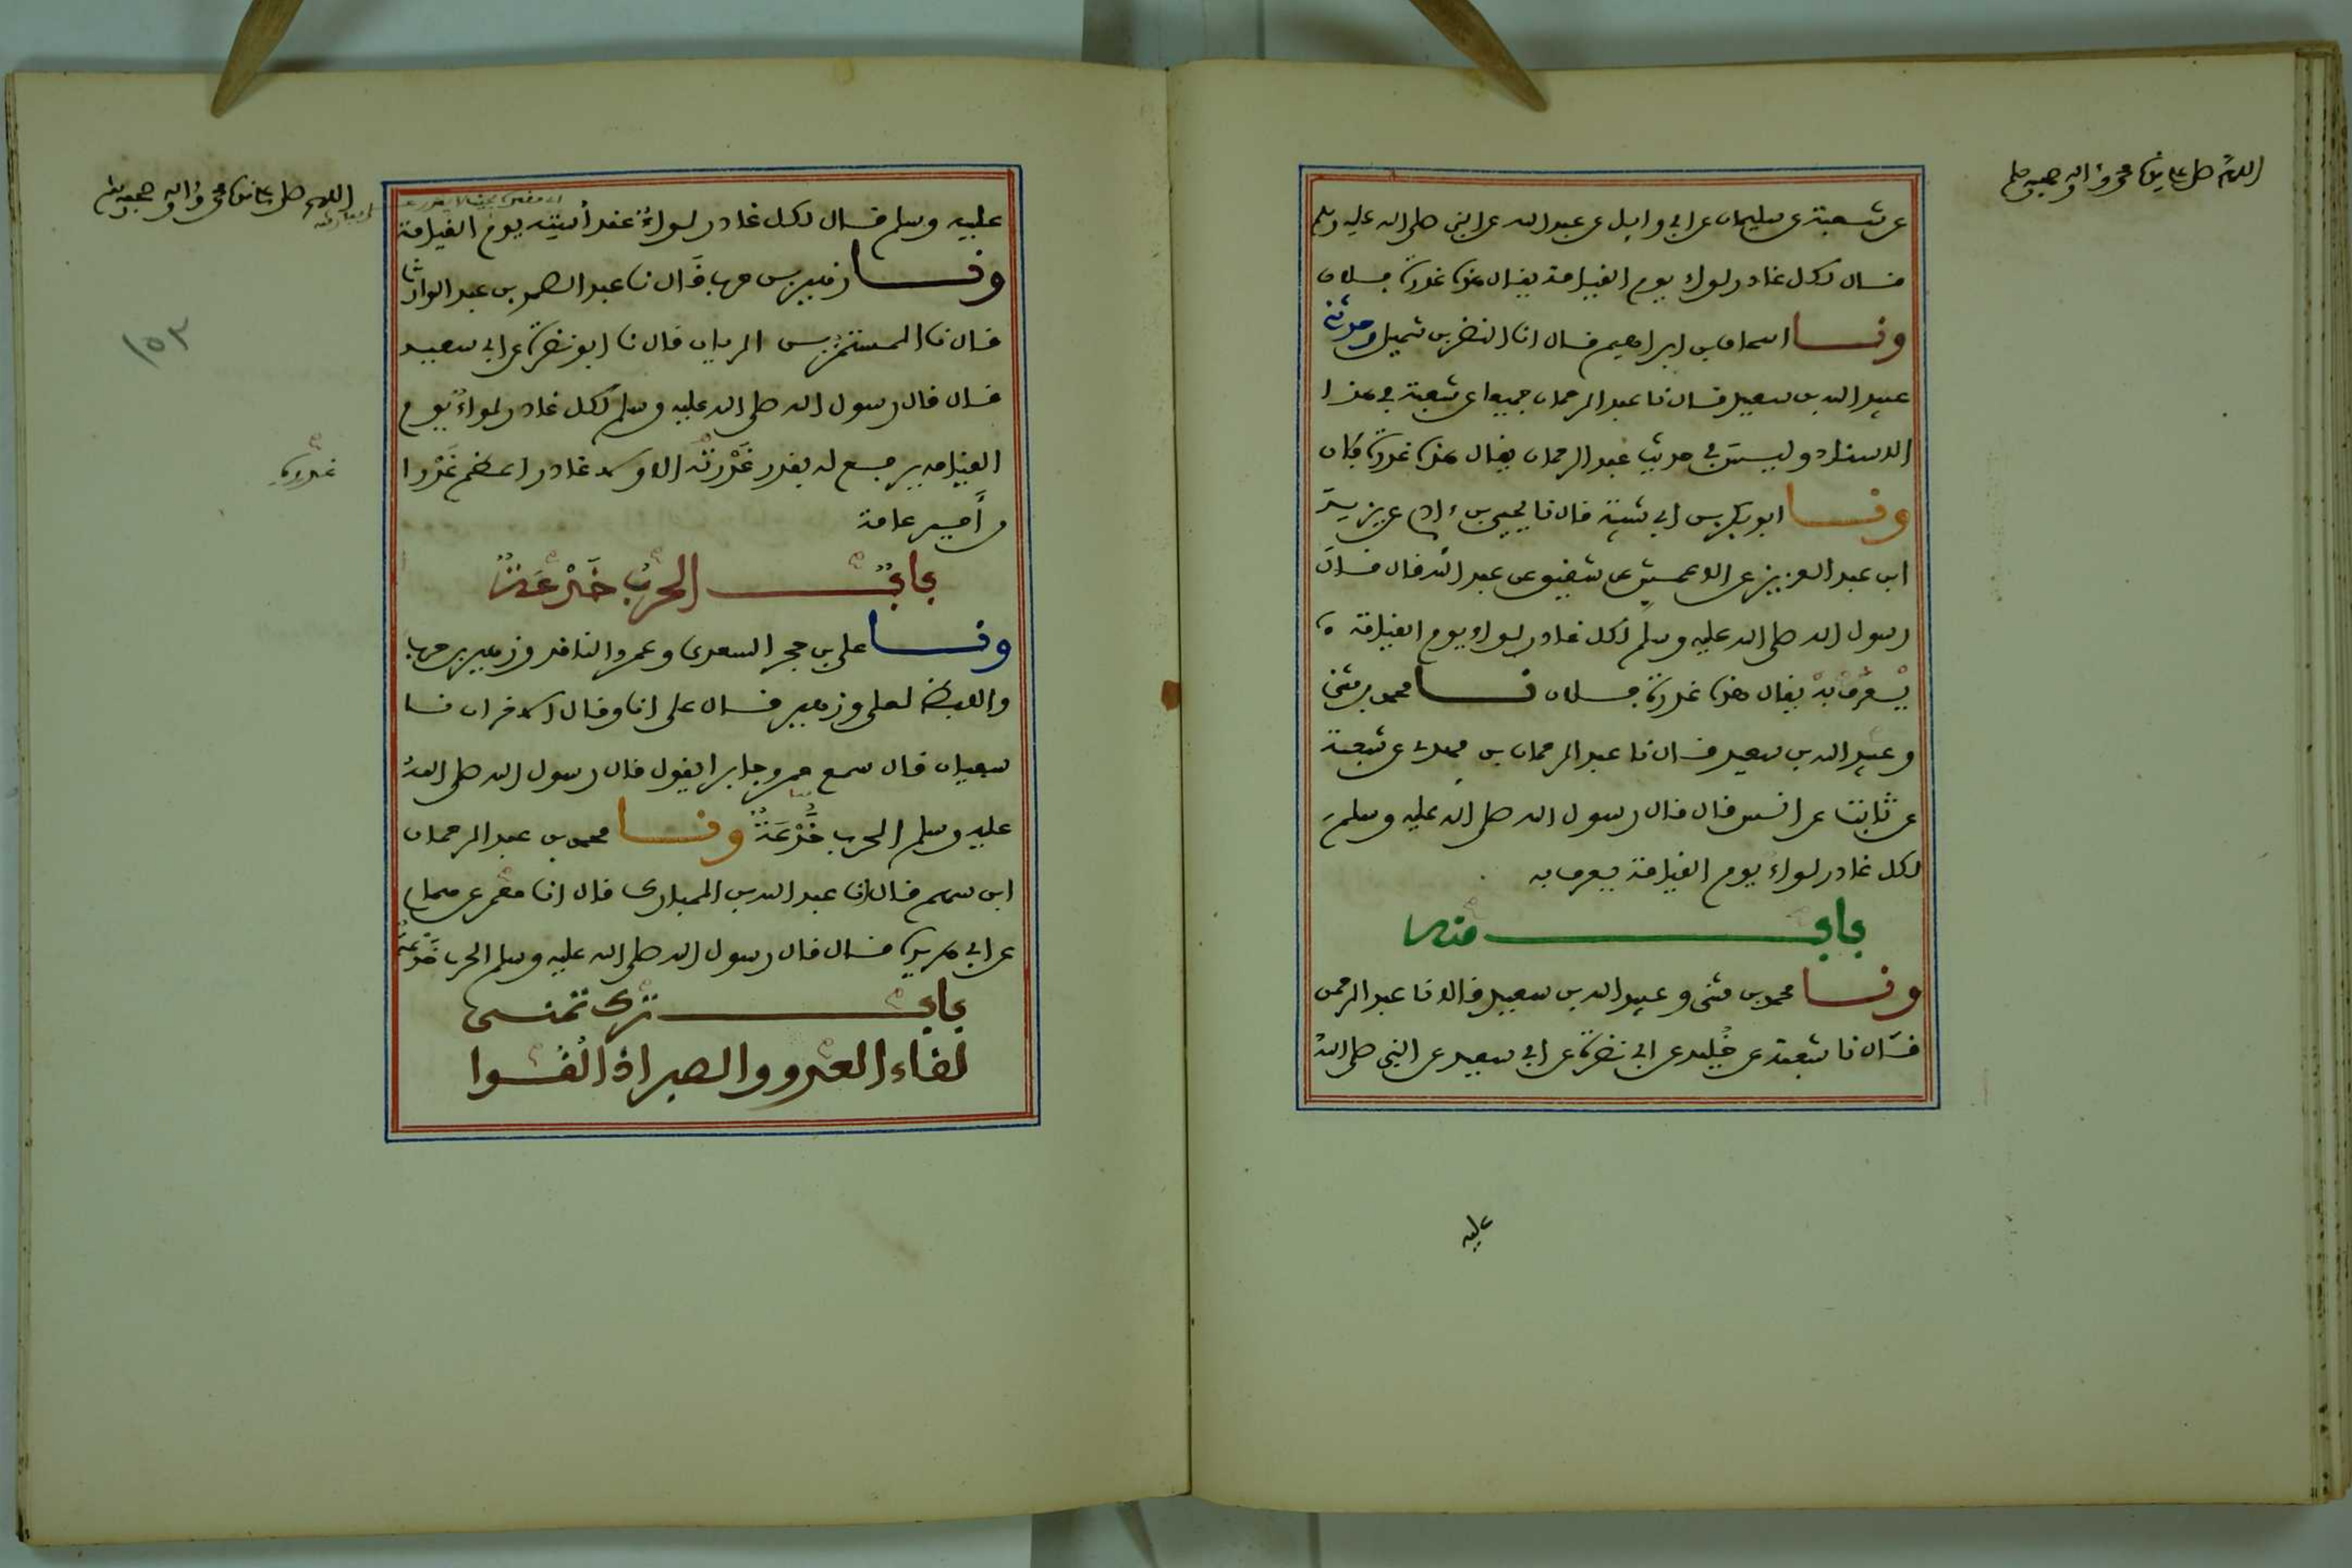 اللهم صل على سيدنا محمد وآله وصحبه وسلم
عن شعبة عن سليمان عن ابي وايل عن عبد الله عن النبي صلى الله عليه وسلم
قال لكل غادر لواء يوم القيامة يقال هذه غدرة فلان
ونا اسحاق بن ابراهيم قال انا النضر بن شميل وحدثني
عبيد الله بن سعيد قال نا عبد الرحمان جميعا عن شعبة في هذا
الاسناد وليس في حديث عبد الرحمان يقال هذه غدرة فلان
ونا ابو بكر بن ابي شيبة قال نا يحيى بن ءادم عن يزيد
ابن عبد العزيز عن الاعمش عن شقيق عن عبد الله قال قال
رسول الله صلى الله عليه وسلم لكل غادر لواء يوم القيامة
يُعرف به يقال هذه غدرة فلان نا محمد بن مثنى
وعبيد الله بن سعيد قال نا عبد الرحمان بن مهدي عن شعبة
عن ثابت عن انس قال قال رسول الله صلى الله عليه وسلم
لكل غادر لواء يوم القيامة يعرف به
باب منه
ونا محمد بن مثنى وعبيد الله بن سعيد قالا نا عبد الرحمن
قال نا شعبة عن خُليد عن ابي نضرة عن ابي سعيد عن النبي صلى الله
عليه
اللهم صل على سيدنا محمد وآله وصحبه وسلم
عليه وسلم قال لكل غادر لواءٌ عند أسته يوم القيامة
ونا زهير بن حرب قال نا عبد الصمد بن عبد الوارث
قال نا المستمر بن الريان قال نا ابو نضرة عن ابي سعيد
قال قال رسول الله صلى الله عليه وسلم لكل غادر لواءٌ يوم
القيامه يرفع له بقدر غَدْرته الا ولا غادر اعظم غَدْرا
من أمير عامة
غدره
١٥٣
بابٌ الحرب خَدْعَةٌ
ونا علي بن حجر السعدي وعمرو الناقد وزهير بن حرب
واللفظ لعلي وزهير قال علي انا وقال الاخران نا
سفيان قال سمع عمرو جابرا يقول قال رسول الله صلى الله
عليه وسلم الحرب خَدْعَةٌ ونا محمد بن عبد الرحمان
ابن سهم قال انا عبد الله بن المبارك قال انا معمر عن همام
عن ابي هريرة قال قال رسول الله صلى الله عليه وسلم الحرب خَدعة
باب ترك تمني
لقاء العدو والصبر اذا لُقُوا